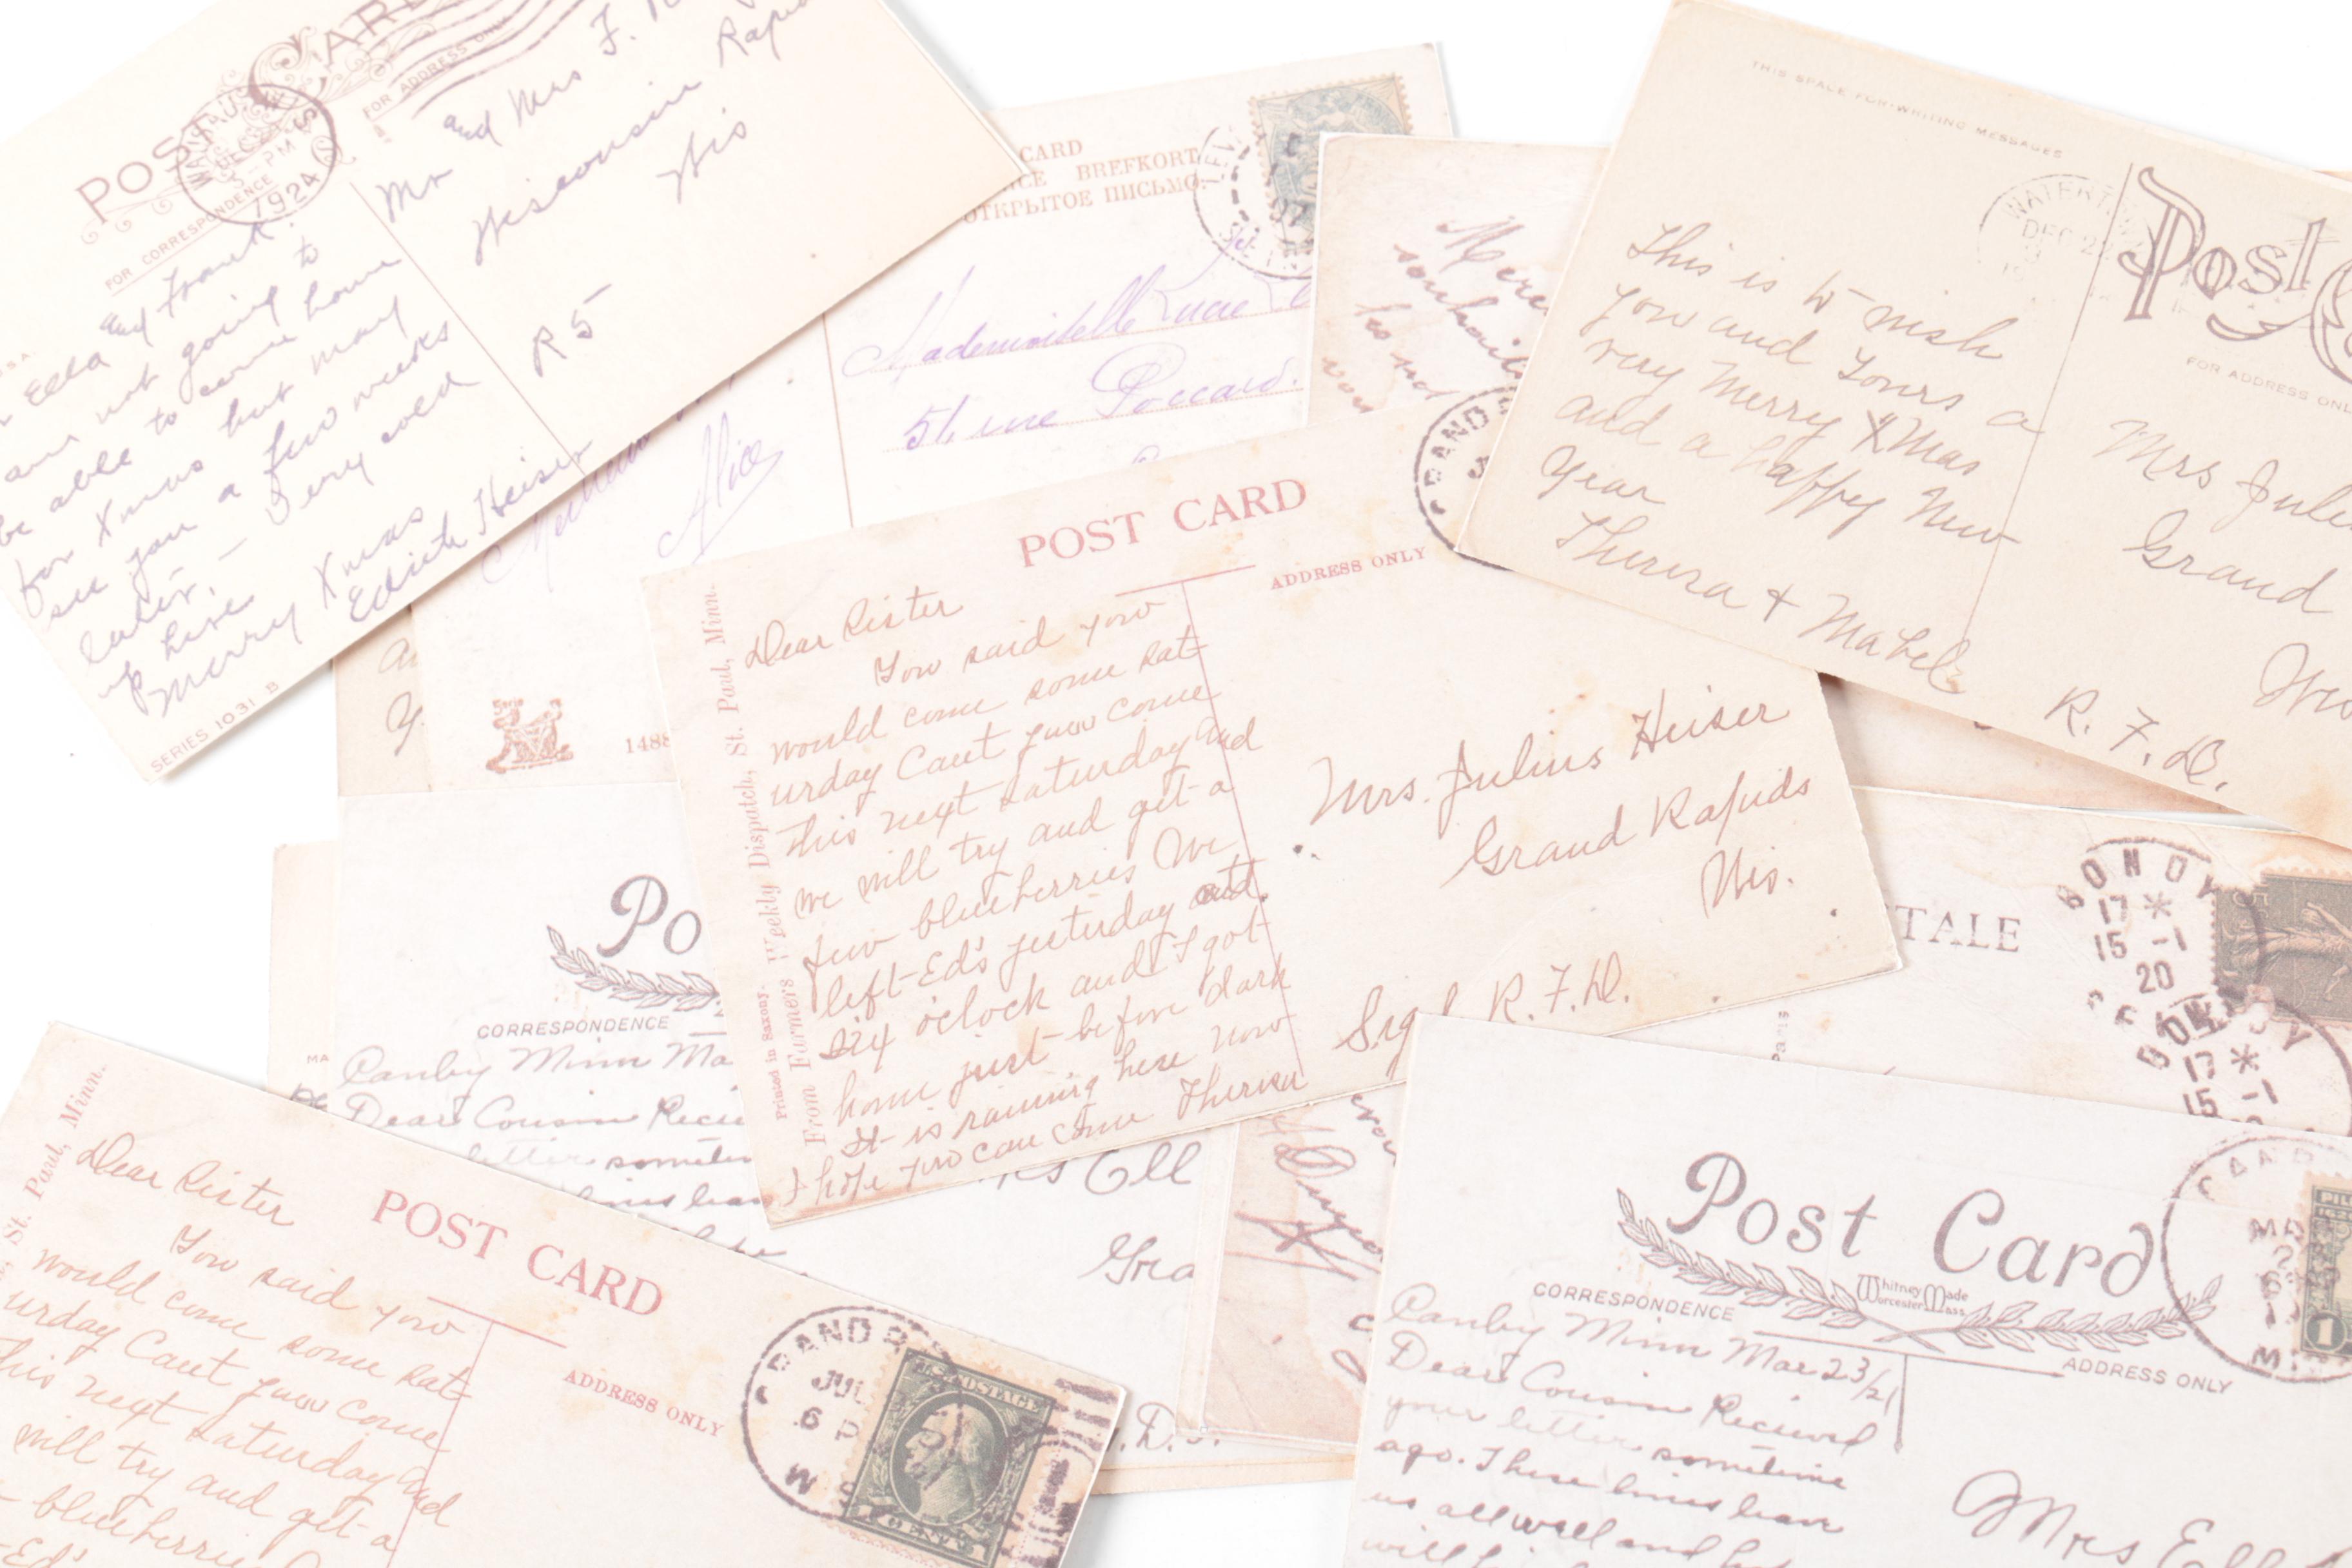 POST CARD
FOR ADDRESS ONLY
WAUSAU
DEC
PM
1924
WIS
FOR CORRESPONDENCE
Ella and Frank.
am not going to
be able to come home
for Xmas but may
see you a few weeks
later, - Very cold
up here
Merry Xmas
Edith Heiser
SERIES 1031 B
Mr and Mrs F.
Wisconsin Rapi
Wis
R 5
CARD
CE BREFKORT
ОТКРЫТОЕ ПИСЬМО.
Mademoiselle Lucie
51 rue Poccard.
Alice
1488
THIS SPACE FOR WRITING MESSAGES
WATERT
DEC 22
Post C
FOR ADDRESS ONL
This is to wish
you and Yours a
very Merry XMas
and a happy New
Year
Theresa + Mabel
Mrs Juli
Grand
Wis
R. F. D.
GRAND
POST CARD
ADDRESS ONLY
Printed in Saxony.
From Farmers Weekly Dispatch, St. Paul, Minn.
Dear Sister
You said you
would come some sat-
urday Cant you come
this next saturday and
we will try and get a
few blueberries We
left Ed's yesterday at
six o'clock and I got
home just before dark
It is raining here now
I hope you can come Theresa
Mrs. Julius Heiser
Grand Rapids
Wis.
Sigel R. F. D.
Po
CORRESPONDENCE
MA
Canby Minn Ma
Dear Cousin Reci
letter sometim
lines leav
rs Ell
Gra
. D.
TALE
Paris
BONDY
17 *
15 -1
20
BONDY
17 *
15 -1
St. Paul, Minn.
POST CARD
ADDRESS ONLY
Dear Sister
You said you
would come some sat-
urday Cant you come
this next saturday and
will try and get a
blueberries
Ed's
GRAND R
JUL
6 P
W
U.S. POSTAGE
1 CENT 1
Post Card
Whitney Made
Worcester Mass
CORRESPONDENCE
ADDRESS ONLY
CANB
MA
M
PIL
1
Canby Minn Mar 23/21
Dear Cousin Recieved
your letter sometime
ago. These lines leave
us all well and hope
will
Mrs Ell